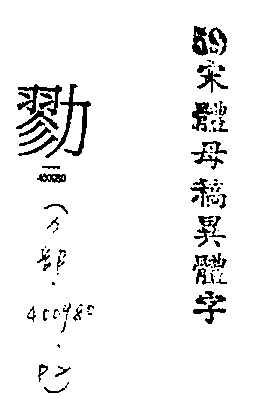 59宋體母稿異體字
勠
400980
(力部.400980.P2)